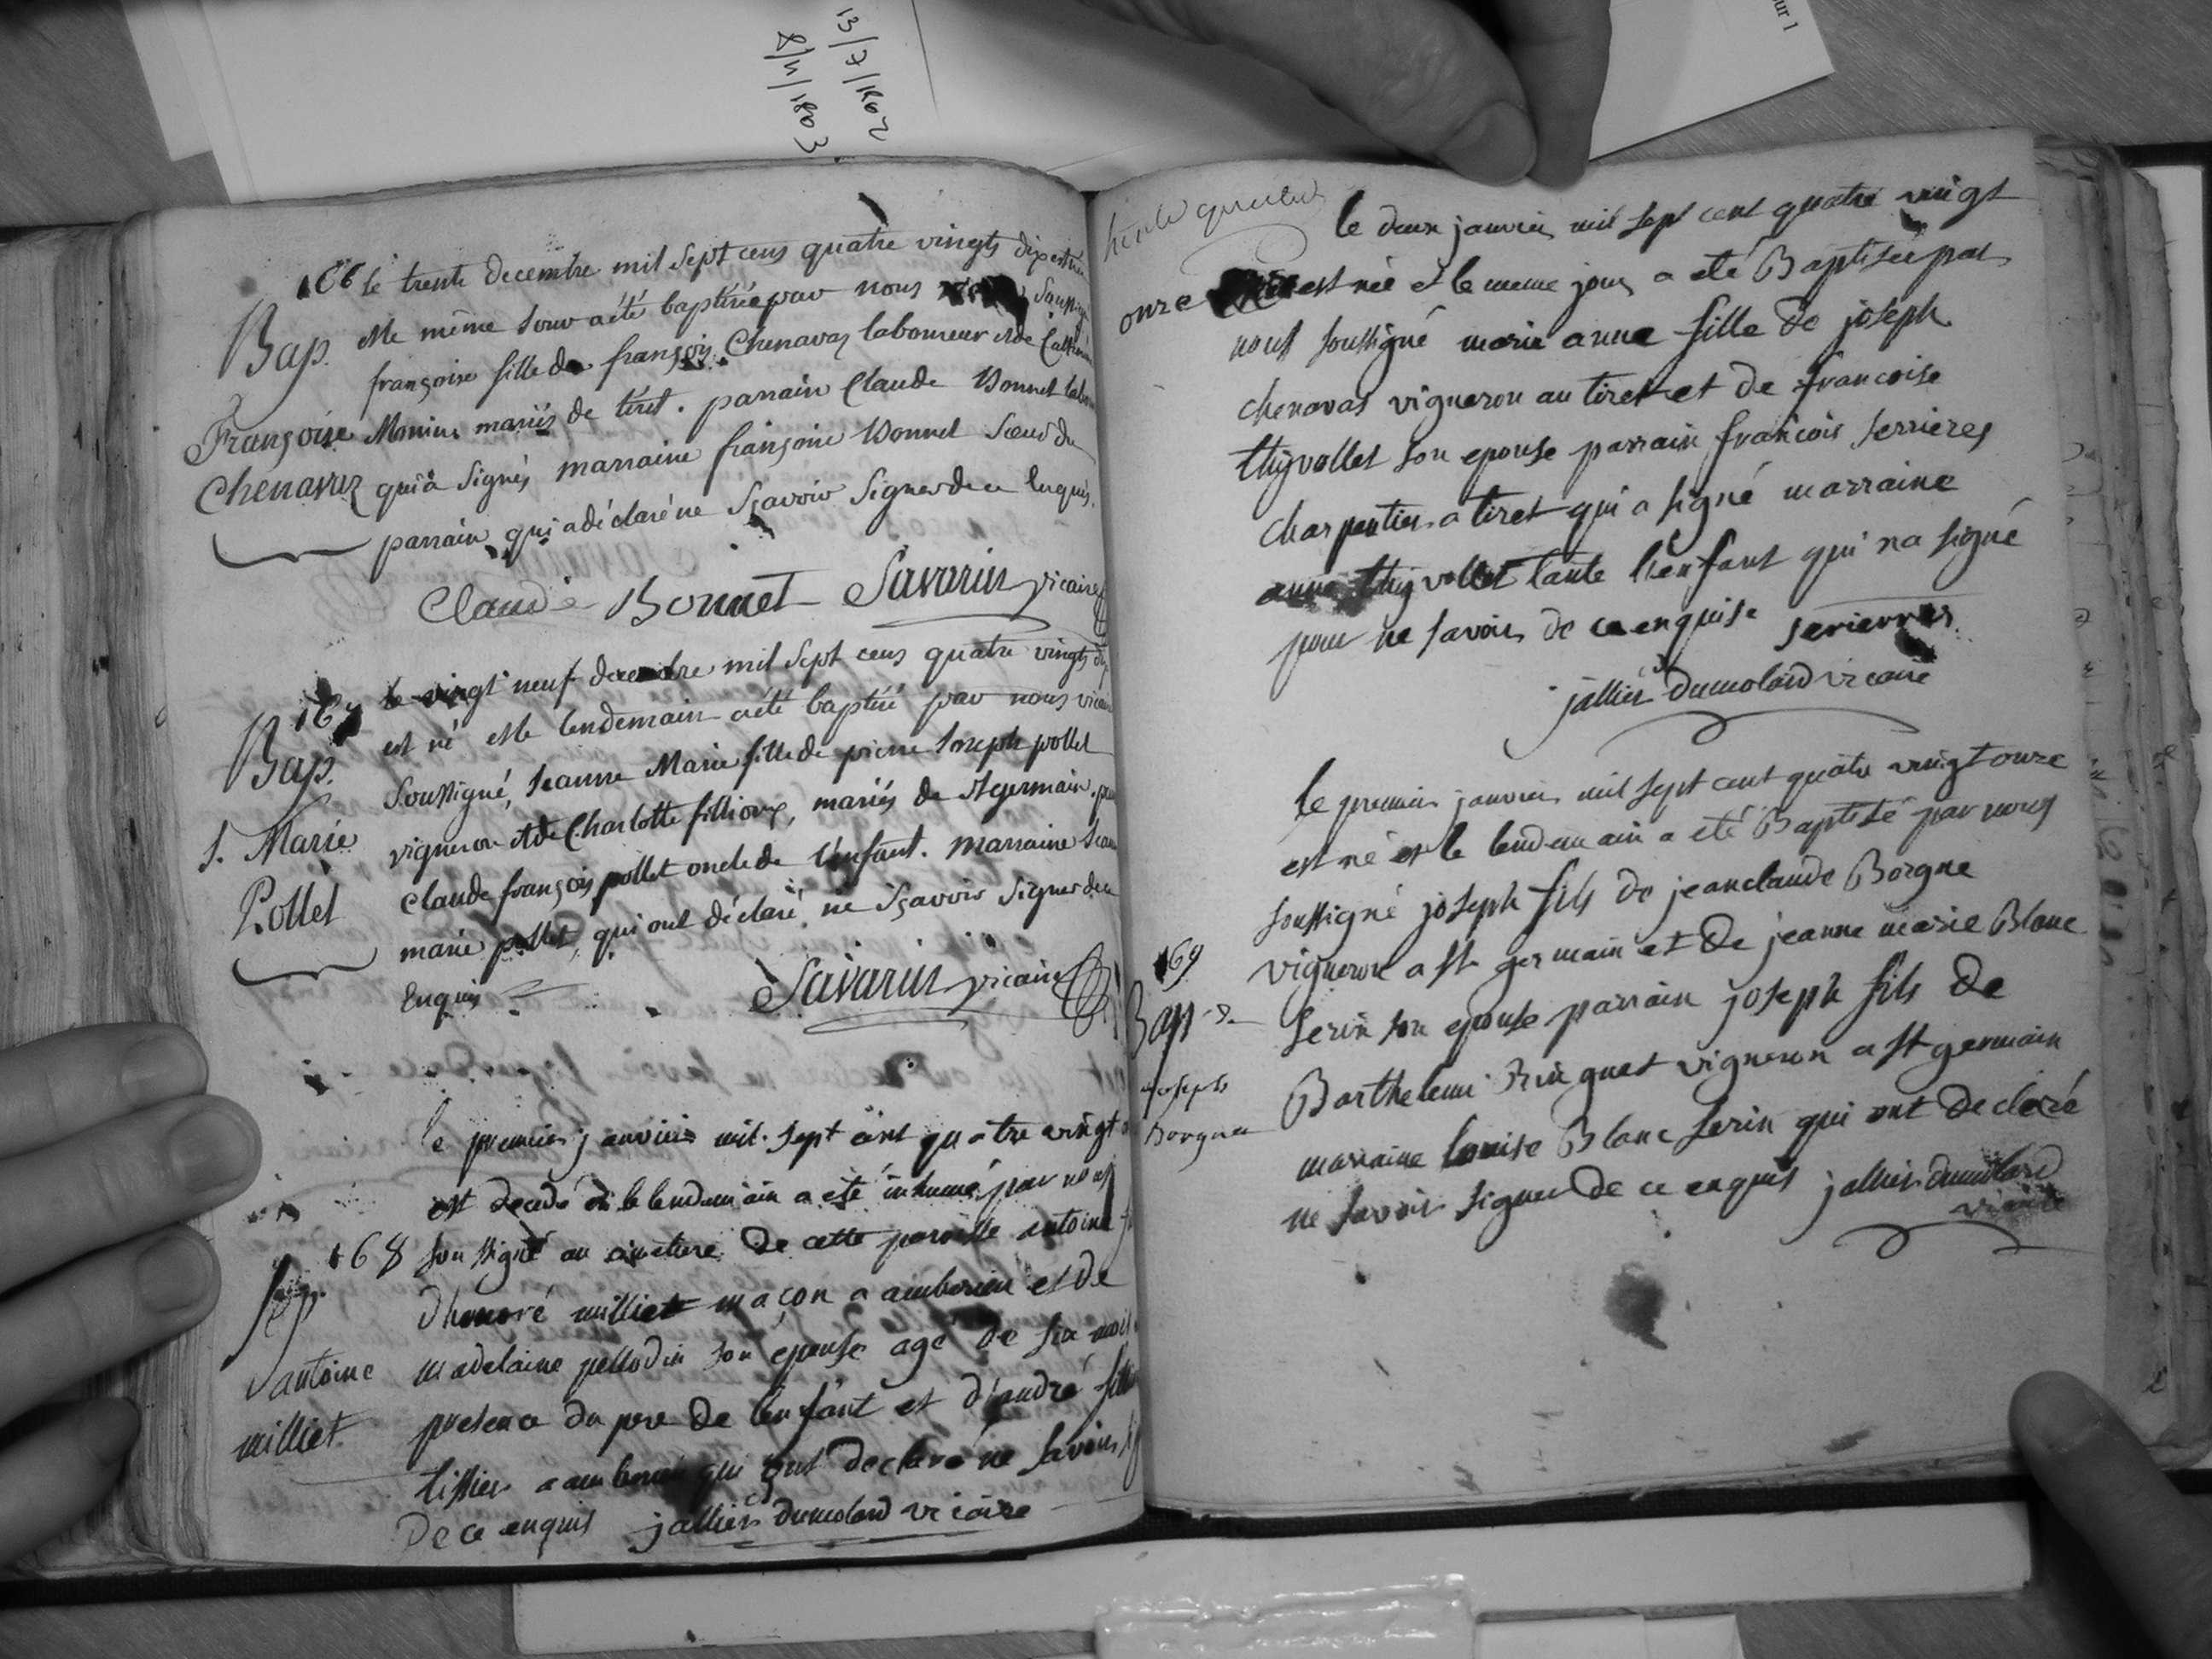 13/7/1802
8/11/1803
our 1
166 le trente decembre mil sept cens quatre vingts dix est née
Bap. et le même jour a été baptisée par nous soussigné
françoise fille de françois Chenavaz laboureur et de Catherine
Françoise Monin mariés de tiret. parrain Claude Bonnet labou
Chenavaz qui a signés marraine françoise Bonnet sœur du
parrain qui a déclaré ne sçavoir signer de ce enquis.
Claude Bonnet Savarin vicaire
167 le vingt neuf decembre mil sept cens quatre vingts dix
Bap. est né et le lendemain a été baptisé par nous vicaire
soussigné, Jeanne Marie fille de pierre Joseph pollet
vigneron et de Charlotte fillioux, mariés de st germain. par
J. Marie claude françois pollet oncle de l'enfant. marraine Jeanne
Pollet marie pollet, qui ont déclaré ne sçavoir signer de ce
Enquis Savarin vicaire
le premier janvier mil sept cent quatre vingt
est decedé et le lendemain a eté inhumé par nous
168 soussigné au cimetiere de cette paroisse antoine
Sep d'honoré milliet maçon a amberieu et de
antoine madelaine pellodin son epouse agé de six mois
milliet presence du pere de lenfant et d'andré
tissier a amberieu qui ont declaré ne savoir
De ce enquis jallier dumolard vicaire
le deux janvier mil sept cent quatre vingt
onze est née et le meme jour a eté Baptisée par
nous soussigné marie anne fille de joseph
chenavas vigneron au tiret et de francoise
thyvollet son epouse parrain francois serrieres
charpentier a tiret qui a signé marraine
anne thyvollet tante l'enfant qui na signé
pour ne savoir de ce enquise serierres
jallier dumolard vicaire
le premier janvier mil sept cent quatre vingt onze
est né et le lendemain a eté Baptisé par nous
soussigné joseph fils de jeanclaude Borgne
169 vigneron a st germain et de jeanne marie Blanc
Bap serin son epouse parrain joseph fils de
joseph Barthelemi vigneron a st germain
Borgne marraine louise Blanc serin qui ont declaré
ne savoir signer de ce enquis jallier dumolard
vicaire